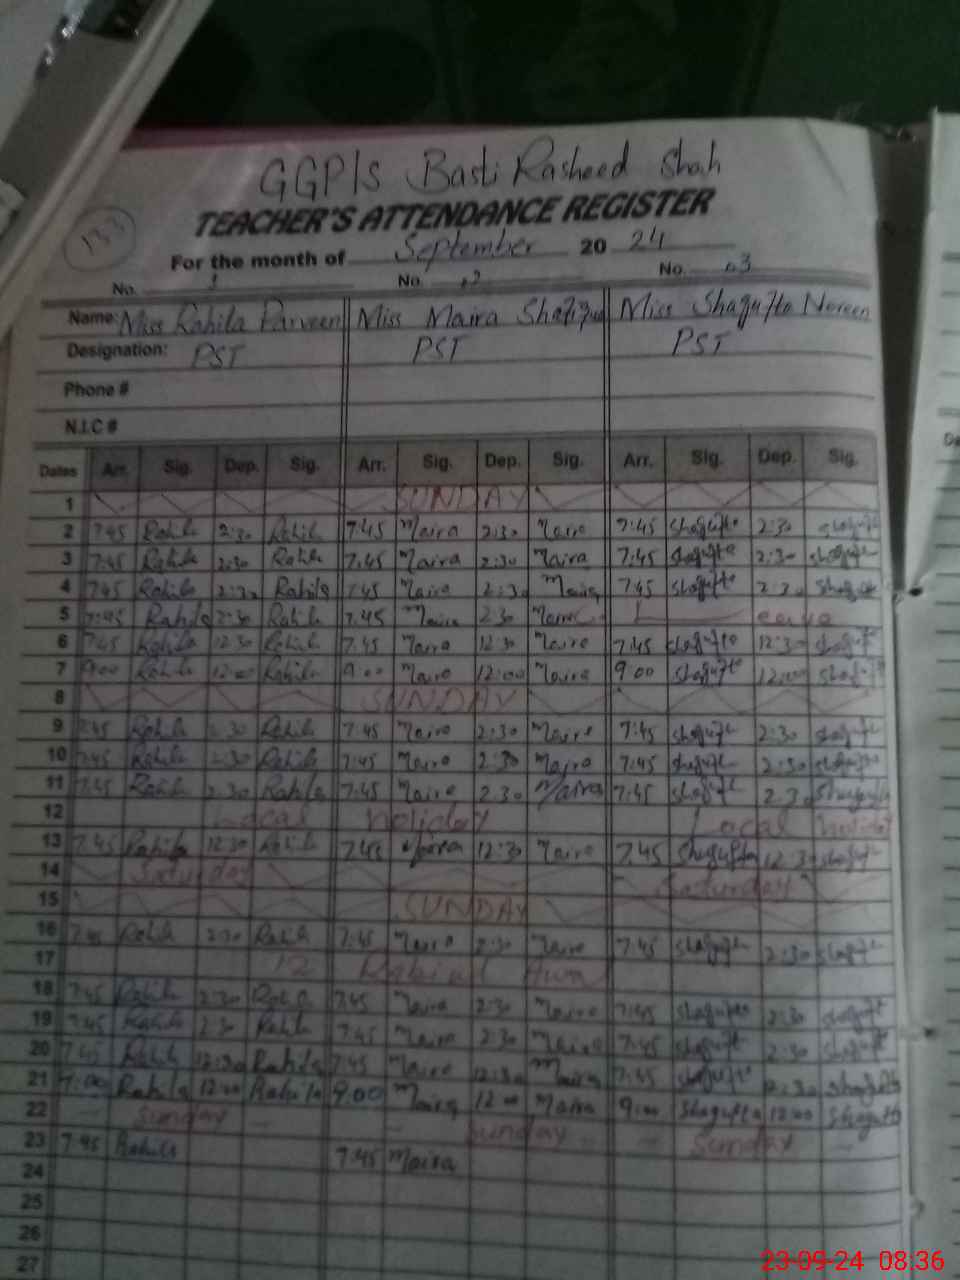 GGPIS Basti Rasheed Shah
TEACHER'S ATTENDANCE REGISTER
133
For the month of September 20 24
No. 1 No. .2 No. .3
Name: Miss Rahila Parveen Miss Maira Miss Shagufta Noreen
Designation: PST PST PST
Phone #
N.I.C #
Dates Arr. Sig. Dep. Sig. Arr. Sig. Dep. Sig. Arr. Sig. Dep. Sig.
1 SUNDAY
2 7:45 Rahila 2:30 Rahila 7:45 Maira 2:30 Maira 7:45 Shagufta 2:30 Shagufta
3 7:45 Rahila 2:30 Rahila 7:45 Maira 2:30 Maira 7:45 Shagufta 2:30 Shagufta
4 7:45 Rahila 2:30 Rahila 7:45 Maira 2:30 Maira 7:45 Shagufta 2:30 Shagufta
5 7:45 Rahila 2:30 Rahila 7:45 Maira 2:30 Maira Leave
6 7:45 Rahila 12:30 Rahila 7:45 Maira 12:30 Maira 7:45 Shagufta 12:30 Shagufta
7 9:00 Rahila 12:00 Rahila 9:00 Maira 12:00 Maira 9:00 Shagufta 12:00 Shagufta
8 SUNDAY
9 7:45 Rahila 2:30 Rahila 7:45 Maira 2:30 Maira 7:45 Shagufta 2:30 Shagufta
10 7:45 Rahila 2:30 Rahila 7:45 Maira 2:30 Maira 7:45 Shagufta 2:30 Shagufta
11 7:45 Rahila 2:30 Rahila 7:45 Maira 2:30 Maira 7:45 Shagufta 2:30 Shagufta
12 Local Holiday Local holiday
13 7:45 Rahila 12:30 Rahila 7:45 Maira 12:30 Maira 7:45 Shagufta 12:30 Shagufta
14 Saturday Saturday
15 SUNDAY
16 7:45 Rahila 2:30 Rahila 7:45 Maira 2:30 Maira 7:45 Shagufta 2:30 Shagufta
17 12 Rabi ul Awal
18 7:45 Rahila 2:30 Rahila 7:45 Maira 2:30 Maira 7:45 Shagufta 2:30 Shagufta
19 7:45 Rahila 2:30 Rahila 7:45 Maira 2:30 Maira 7:45 Shagufta 2:30 Shagufta
20 7:45 Rahila 12:30 Rahila 7:45 Maira 12:30 Maira 7:45 Shagufta 12:30 Shagufta
21 9:00 Rahila 12:00 Rahila 9:00 Maira 12:00 Maira 9:00 Shagufta 12:00 Shagufta
22 Sunday Sunday Sunday
23 7:45 Rahila 7:45 Maira
24
25
26
27
23-09-24 08:36